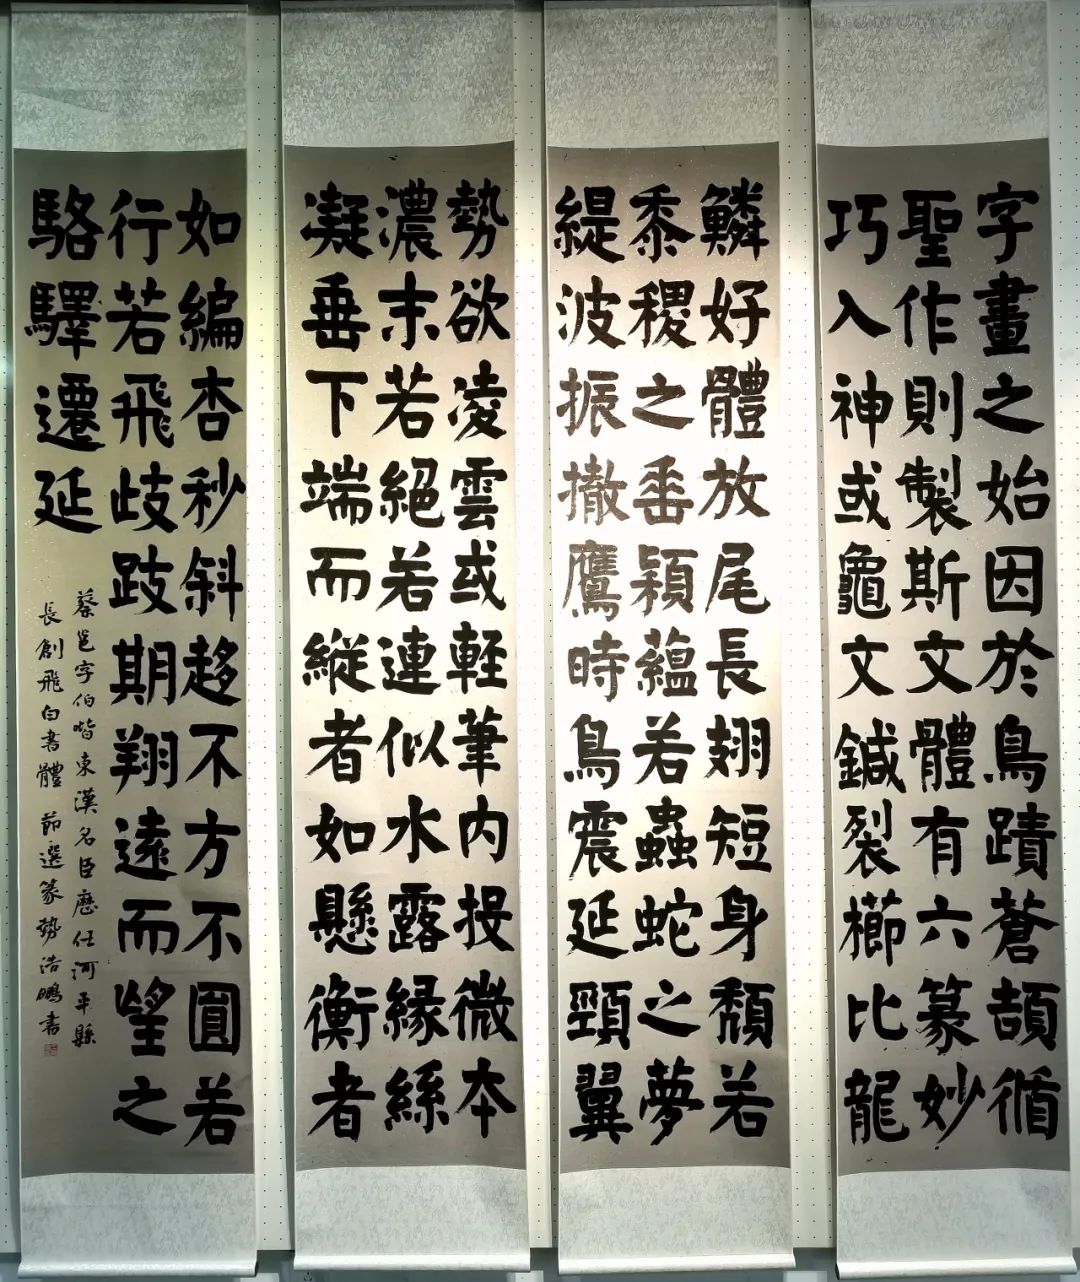 字畫之始因於鳥蹟蒼頡循
聖作則製斯文體有六篆妙
巧入神或龜文鍼裂櫛比龍
鱗好體放尾長翅短身頽若
黍稷之垂穎蘊若蟲蛇之夢
緹波振撤鷹時鳥震延頸翼
勢欲凌雲或輕筆内投微本
濃末若絕若連似水露緣絲
凝垂下端而縱者如懸衡者
如編杏秒斜趍不方不圓若
行若飛歧跂期翔遠而望之
駱驛遷延
蔡邕字伯喈東漢名臣歷任河平縣
長創飛白書體節選篆勢浩鵬書